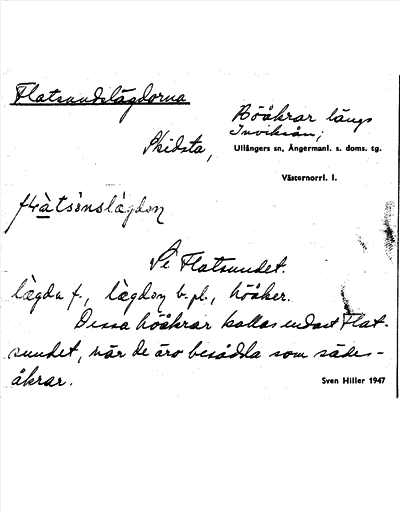 Flatsundslägdorna
Höåkrar längs
Inviksån;
Skidsta,
Ullångers sn, Ångermanl. s. doms. tg.
Västernorrl. l.
Se Flatsundet.
lägda f., lägdọn b. pl., höåker.
Dessa höåkrar kallas endast Flat-
sundet, när de äro besådda som sädes-
åkrar.
Sven Hiller 1947